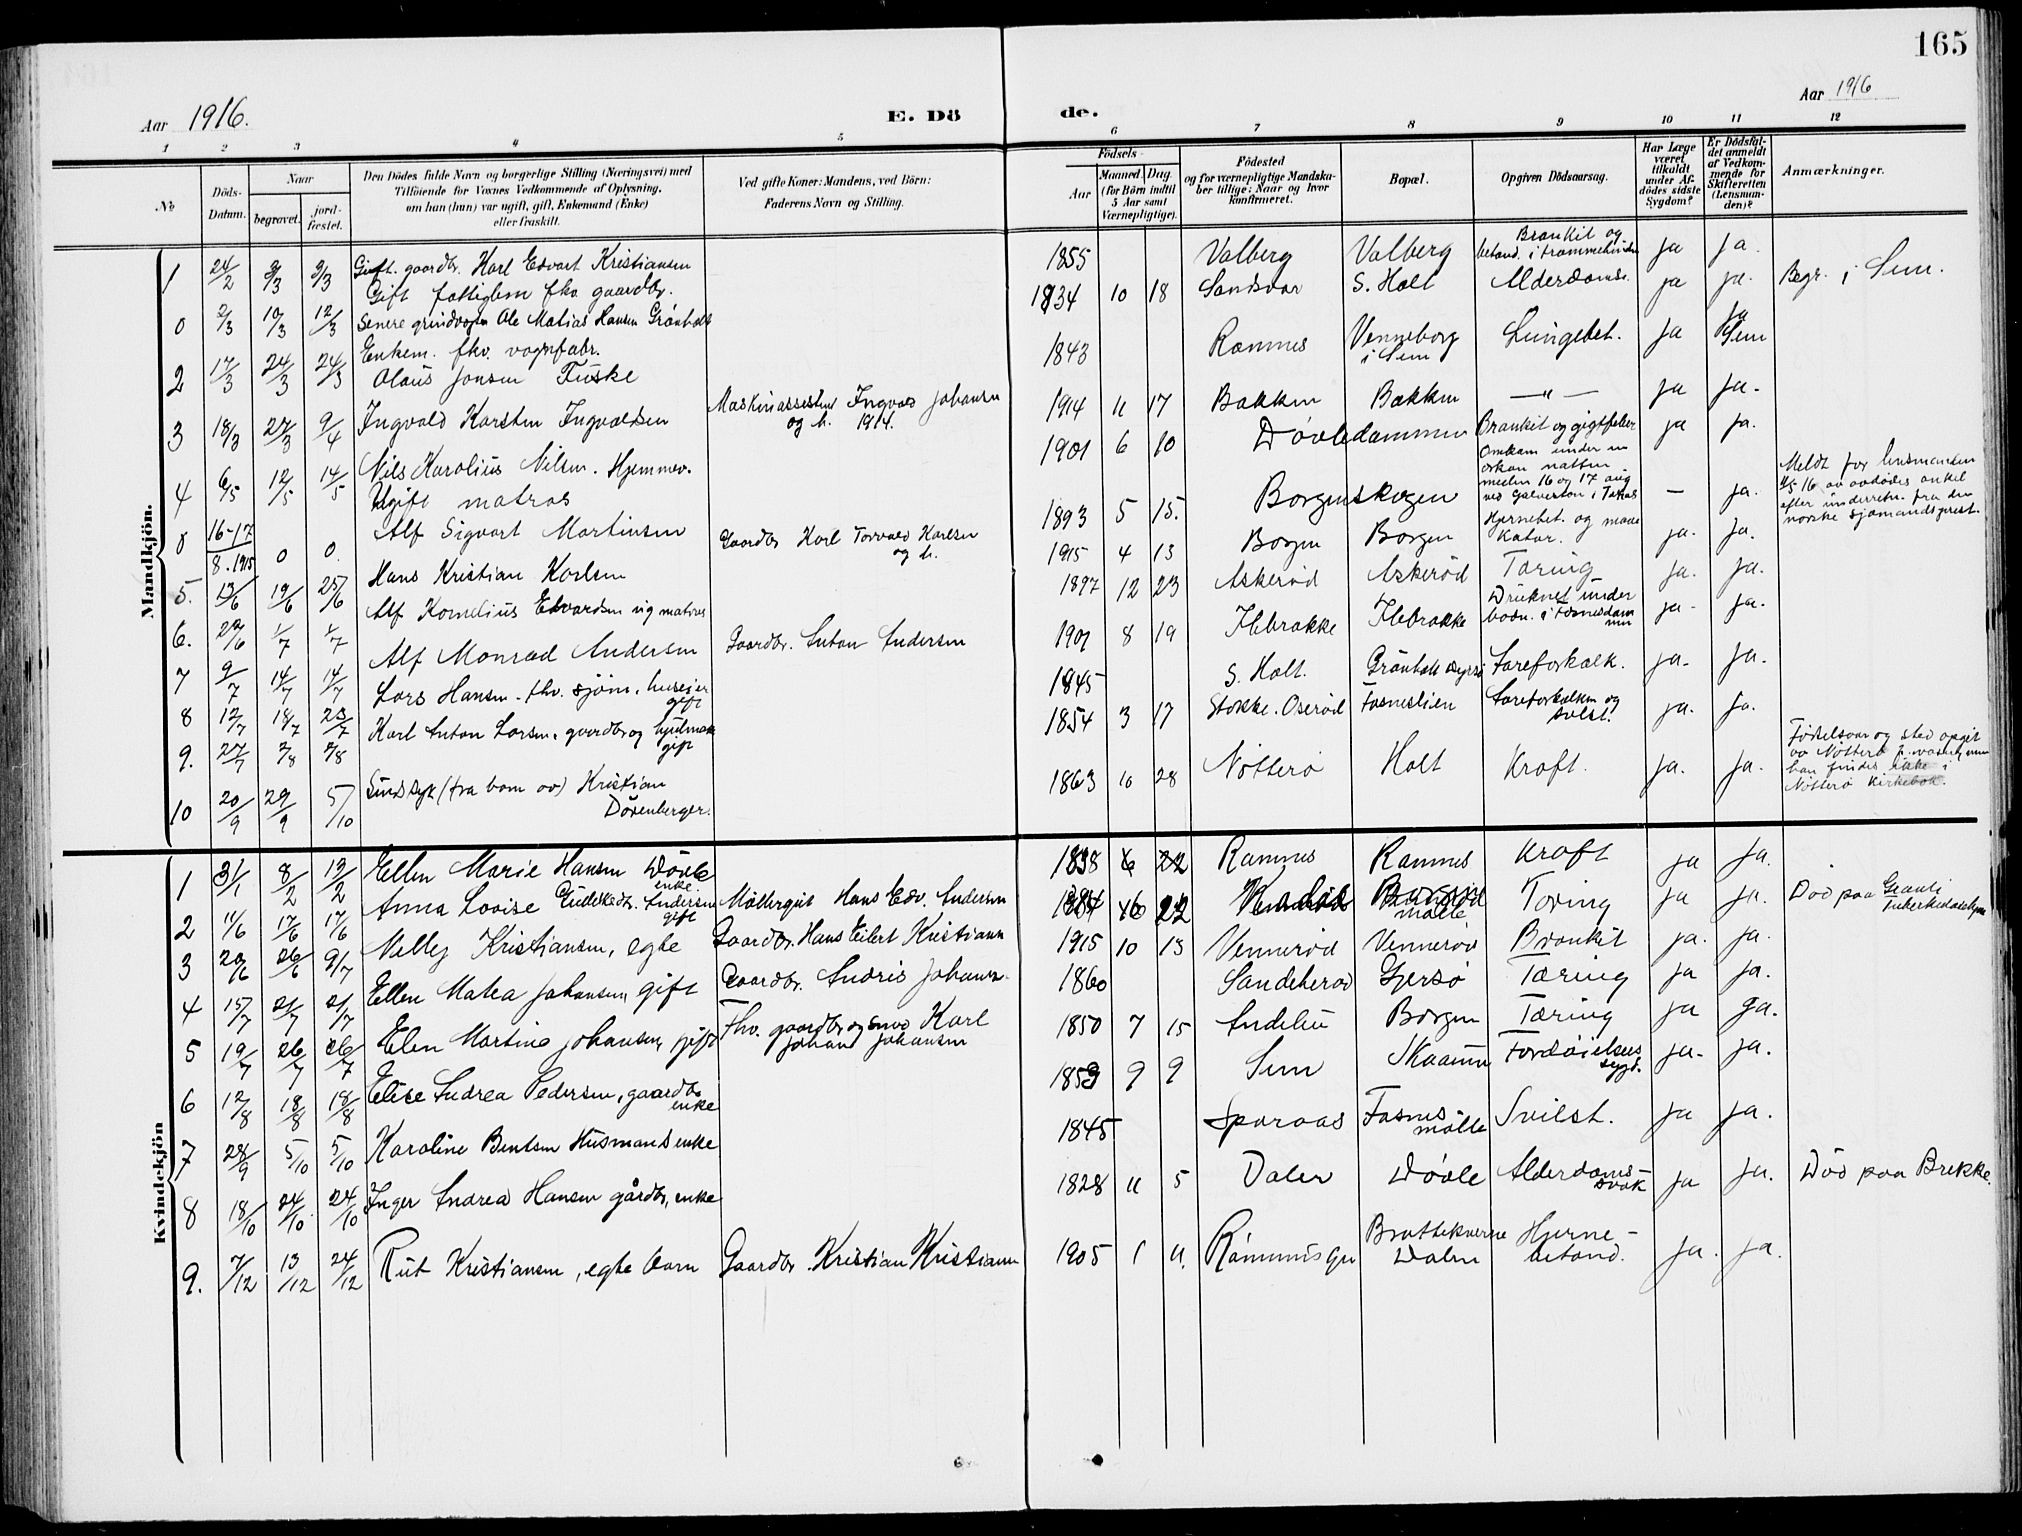 165
Aar 1916.
E. Dö
de.
Aar 1916
1 2 3 4 5 6 7 8 9 10 11 12
No
Döds-
Datum.
Naar
begravet.
jord-
fæstet.
Den Dödes fulde Navn og borgerlige Stilling (Næringsvei) med
Tilföiende for Voxnes Vedkommende af Oplysning,
om han (hun) var ugift, gift, Enkemand (Enke)
eller fraskilt.
Ved gifte Koner: Mandens, ved Börn:
Faderens Navn og Stilling.
Födsels-
Aar
Maaned. Dag.
(for Börn indtil
5 Aar samt
Værnepligtige).
Födested
og for værnepligtige Mandska-
ber tillige: Naar og hvor
konfirmeret.
Bopæl.
Opgiven Dödsaarsag.
Har Læge
været
tilkaldt
under Af-
dödes sidste
Sygdom?
Er Dödsfal-
det anmeldt
af Vedkom-
mende for
Skifteretten
(Lensman-
den)?
Anmærkninger.
Mandkjön.
1 24/2 9/3 9/3 Gift. gaardbr. Karl Edvart Kristiansen 1855 Valberg Valberg Bronkit og
betænd. i trommehinden ja ja.
Gift fattiglem fhv. gaardbr.
0 2/3 10/3 12/3 senere grindvogter Ole Matias Hansen Grönholt 1834 10 18 Sandsvær S. Holt Alderdomssv. ja ja. Begr. i Sem.
Enkem. fhv. vognfabr.
2 17/3 24/3 24/3 Olaus Jonsen Fuske 1843 Ramnes Venneborg
i Sem Lungebet. ja ja
Sem
3 18/3 27/3 9/4 Ingvald Karsten Ingvaldsen Maskinassistent Ingvald Johansen
og h. 1914. 1914 11 17 Bakken Bakken — " — ja ja.
4 6/5 12/5 14/5 Nils Karolius Nilsen. Hjemmev. 1901 6 10 Døvledammen Bronkit og gigtfeber ja ja.
Ugift matros
0 16-17/8. 1915 0 0. Alf Sigvart Martinsen 1893 5 15. Borgenskogen Omkom under en
orkan natten
mellem 16 og 17 aug
ved Galveston i Texas — ja. Meldt for lensmanden
4/5 16 av avdødes onkel
efter underretn. fra den
norske sjømandsprest.
5. 13/6 19/6 25/6 Hans Kristian Karlsen Gaardbr Karl Torvald Karlsen
og h. 1915 4 13 Borgen Borgen Hjernebet. og mave
katar. ja. ja.
6. 29/6 1/7 1/7 Alf Kornelius Edvardsen ug matros 1897 12 23 Askerød Askerød Tæring ja. ja.
7 9/7 14/7 14/7 Alf Monrad Andersen Gaardbr. Anton Andersen 1901 8 19 Ilebrække Ilebrække Druknet under
badn. i Fosnesdam
men ja- ja.
8 12/7 18/7 23/7 Lars Hansen. fhv. sjøm. huseier
gift 1845 S. Holt. Grönholt Aareforkalk. ja- ja.
9. 27/7 2/8 2/8 Karl Anton Larsen. gaardbr og hjulmak
gift 1854 3 17 Stokke. Oserød Fosneslien Aareforkalkn og
ja. ja.
10 20/9 29/9 5/10 Sindssyk (fra barn av) Kristian
Dørenberger. 1863 10 28 Nøtterø Holt Kræft. ja. ja. Fødselsaar og sted opgit
av Nøtterø
han findes ikke i
Nøtterø kirkebok.
Kvindekjön
1 31/1 8/2 13/2 Ellen Marie Hansen Døvle
enke. 1838 6 22 Ramnes Ramnes Kræft ja ja.
2 11/6 17/6 17/6 Anna Lovise Andersen
gift Møllergut Hans Edv. Andersen
mølle Tæring ja ja. Død paa Granli
Tuberkulosehjem
3 20/6 26/6 9/7 Nelly Kristiansen, egte Gaardbr. Hans Eilert Kristiansen 1915 10 13 Vennerød Vennerød Bronkit ja. ja.
4 15/7 21/7 21/7 Ellen Matea Johansen, gift Gaardbr. Andris Johansen. 1860 Sandeherad Gjersø Tæring ja ja.
5 19/7 26/7 26/7 Elen Martine Johansen, gift Fhv. gaardbr og smed Karl
Johan Johansen 1850 7 15 Andebu Borgen Tæring ja ja.
6 12/8 18/8 18/8 Elise Andrea Pedersen, gaardbr
enke 1859 9 9 Sem Skaaum Fordøielses
sygd. ja- ja.
7 28/9 5/10 5/10 Karoline Bentsen Husmands enke 1845 Sparaas Fosnes
mølle ja ja.
8 18/10 24/10 24/10 Inger Andrea Hansen gårdbr, enke 1828 11 5 Døvle Alderdoms-
svak ja ja. Død paa Brekke.
9. 7/12 13/12 24/12 Rut Kristiansen, egte barn Gaardbr. Kristian Kristiansen 1905 1 11. Ramnes
Dalen Hjerne-
betænd. ja. ja.